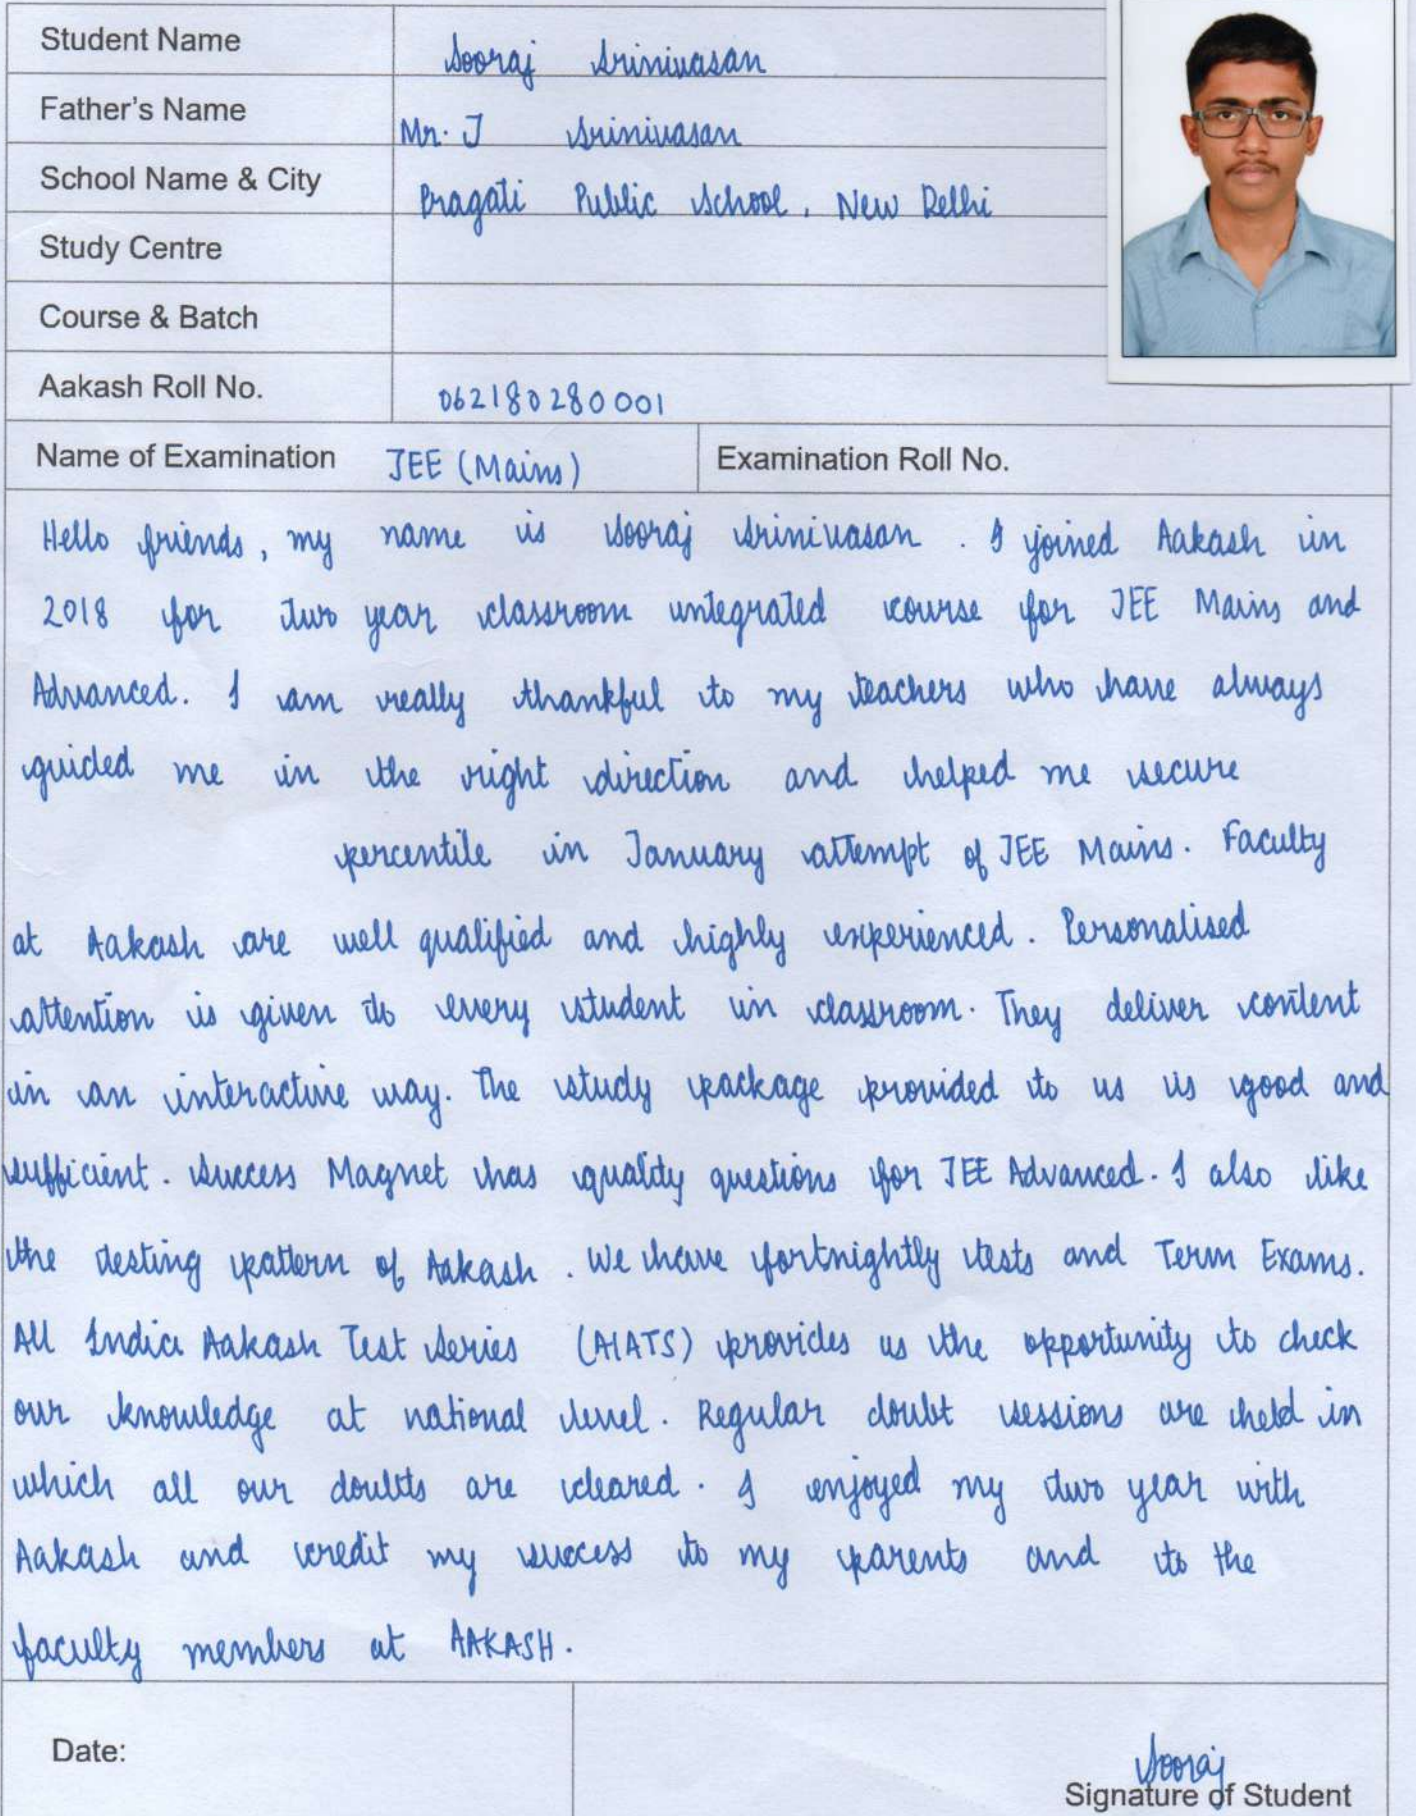 Student Name Sooraj Srinivasan
Father's Name Mr. J Srinivasan
School Name & City Pragati Public School, New Delhi
Study Centre
Course & Batch
Aakash Roll No. 062180280001
Name of Examination JEE (Mains) Examination Roll No.
Hello friends, my name is Sooraj Srinivasan. I joined Aakash in
2018 for two year classroom integrated course for JEE Mains and
Advanced. I am really thankful to my teachers who have always
guided me in the right direction and helped me secure
percentile in January attempt of JEE Mains. Faculty
at Aakash are well qualified and highly experienced. Personalised
attention is given to every student in classroom. They deliver content
in an interactive way. The study package provided to us is good and
sufficient. Success Magnet has quality questions for JEE Advanced. I also like
the testing pattern of Aakash. We have fortnightly tests and Term Exams.
All India Aakash Test Series (AIATS) provides us the opportunity to check
our knowledge at national level. Regular doubt sessions are held in
which all our doubts are cleared. I enjoyed my two year with
Aakash and credit my success to my parents and to the
faculty members at AAKASH.
Date:
Sooraj
Signature of Student